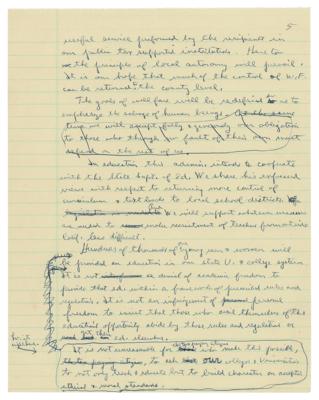 5
useful service performed by the recipients in
our public tax supported institutions. Here too
the principle of local autonomy will prevail.
It is our hope that much of the control of W.F.
can be returned to the county level.
The goals of welfare will be redefined so as to
emphasize the salvage of human beings. At the same
time we will accept fully & generously our obligation
to those who through no fault of their own must
depend on the rest of us.
In education this admin. intends to cooperate
with the State Supt. of Ed. We share his expressed
views with respect to returning more control of
curriculum & text books to local school districts
We will support whatever measures
are needed to make recruitment of teachers from outside
Calif. less difficult.
Hundreds of thousands of young men & women will
be provided an education in our state U. & college system.
It is not a denial of academic freedom to
provide that ed. within a framework of prescribed rules and
regulations. It is not an infringement of personal
freedom to insist that those who avail themselves of this
education opportunity abide by those rules and regulations or
get their ed. elsewhere.
It is not unreasonable for
to ask our colleges & Universities
to not only teach & educate but to build character on accepted
ethical & moral standards.